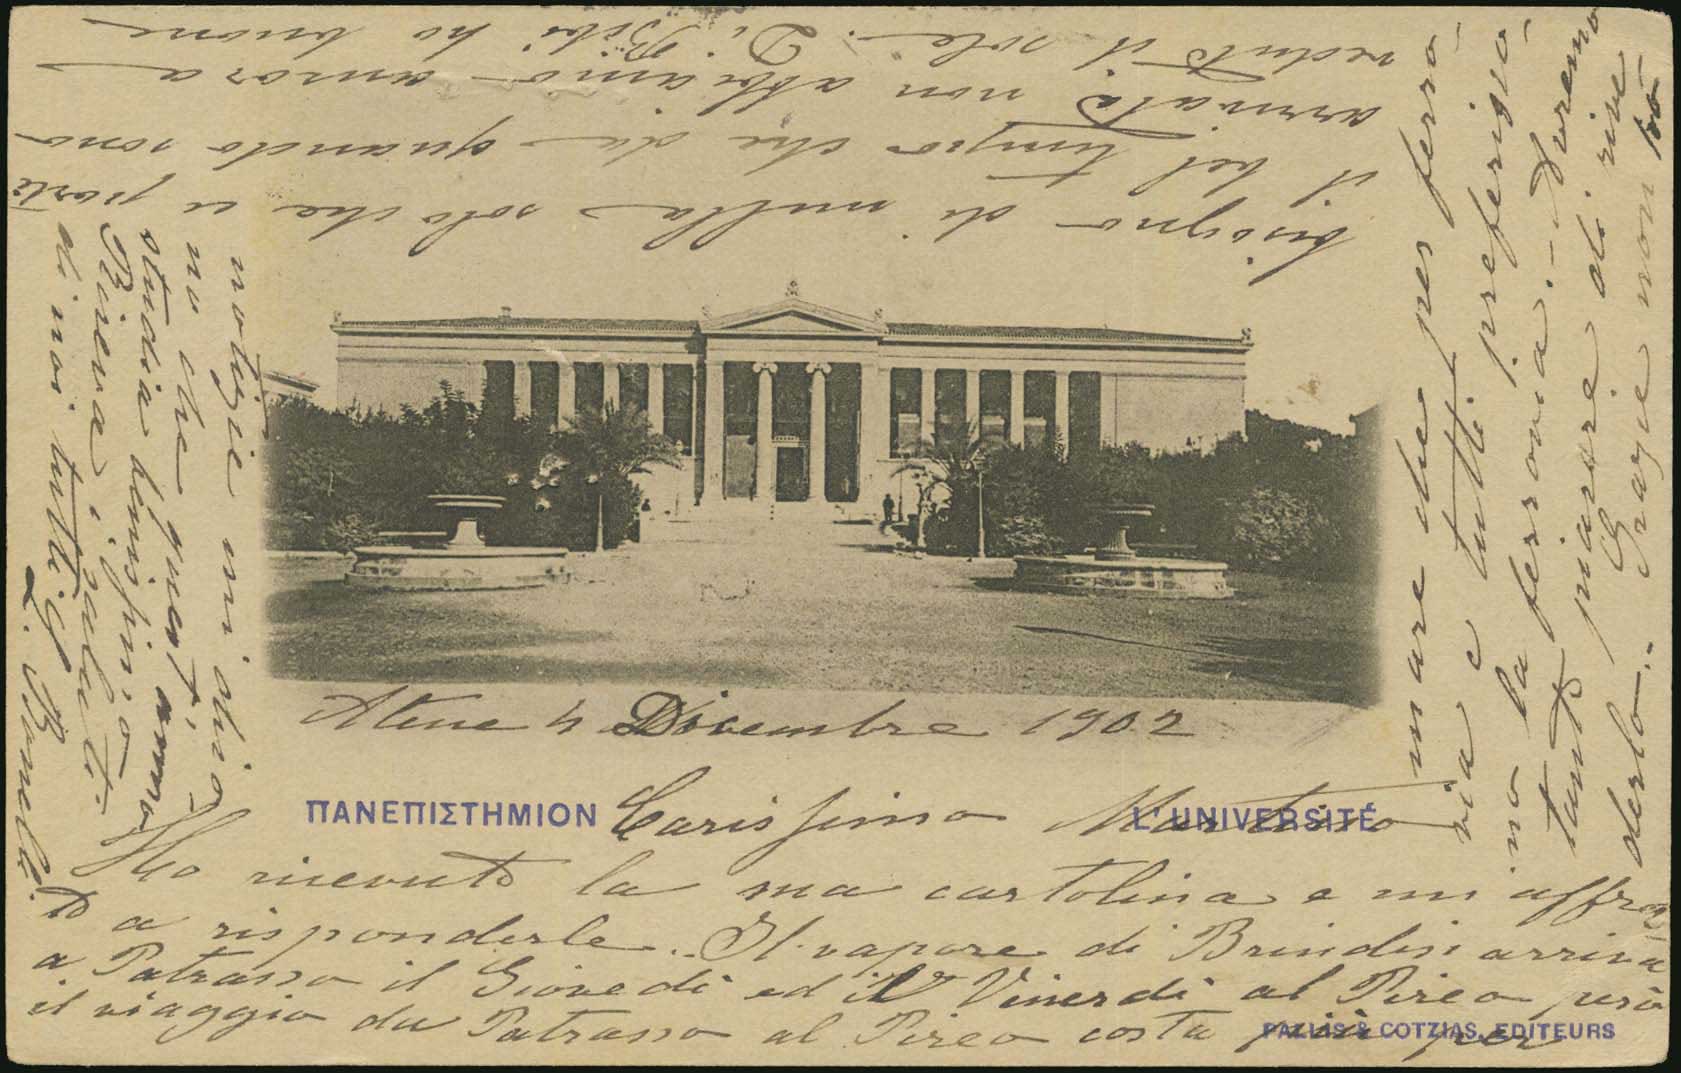 Atene 4 Dicembre 1902
ΠΑΝΕΠΙΣΤΗΜΙΟΝ
L' UNIVERSITÉ
Carissimo Martino
Ho ricevuto la sua cartolina e mi affret
to a risponderle. Il vapore di Brindisi arriva
a Patrasso il Giovedì ed il Venerdì al Pireo però
il viaggio da Patrasso al Pireo costa più per
PALLIS & COTZIAS, EDITEURS
mare che per ferro-
via e tutti preferisco-
no la ferrovia. - Avremo
tanto piacere di rive
derlo.. Grazie non ho
bisogno di nulla solo che ci porti
il bel tempo che da quando sono
arrivata non abbiamo ancora
veduto il sole. Di Bibi ho buone
notizie mi dico
no che quest'anno
studia benissimo
Riceva i saluti
di noi tutti